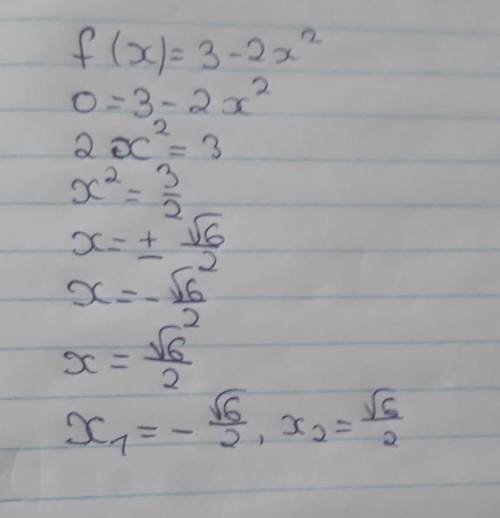 f(x) = 3 - 2x²
0 = 3 - 2x²
2x² = 3
x² = 3/2
x = ± √6/2
x = - √6/2
x = √6/2
x₁ = - √6/2, x₂ = √6/2